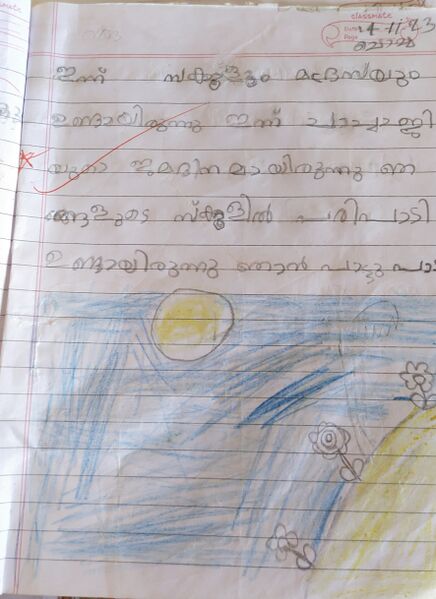 classmate
Date 14-11-23
Page
ഇന്ന് സ്കൂളും മദ്രസയും
ഉണ്ടായിരുന്നു ഇന്ന് ചാച്ചാജി
യുടെ ജമദിന മായിരുന്നു ഞ
ങ്ങളുടെ സ്കൂളിൽ പരിപാടി
ഉണ്ടായിരുന്നു ഞാൻ പാട്ടു പാ